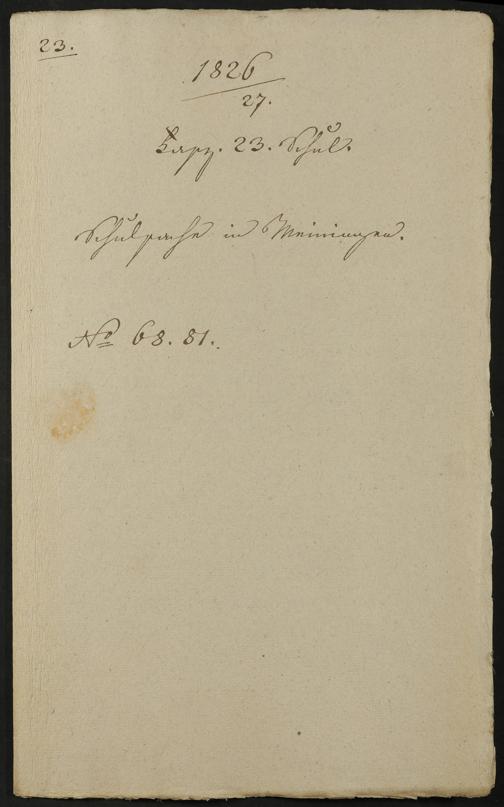 23.
1826
27.
Kapp. 23. Schul.
Schulsache in Meiningen.
No 68. 81.